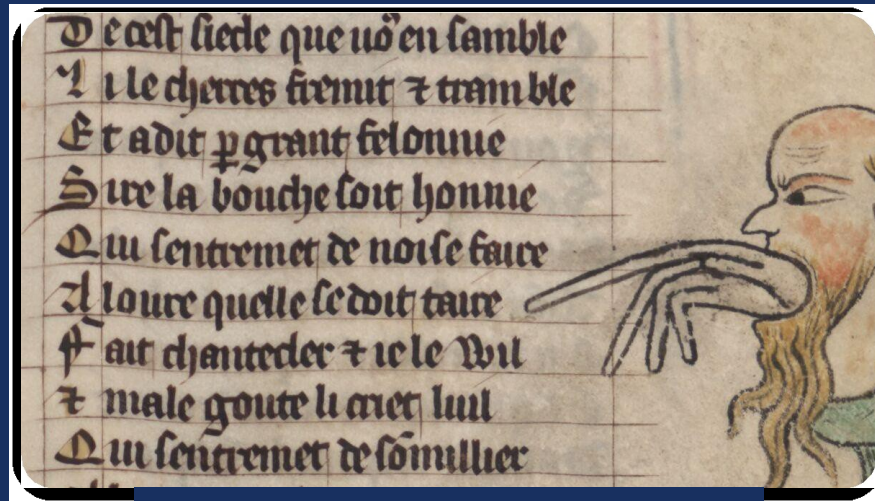 De cest siecle que uo᷒ en samble
Li lecherres fremist ⁊ tramble
Et a dit ꝑ grant felonnie
Sire la bouche soit honnie
Qui sentremet de noise faire
A loure quelle se doit taire
Fait chantecler ⁊ ie le Wil
⁊ male goute li criet luil
Qui sentremet de sōmillier